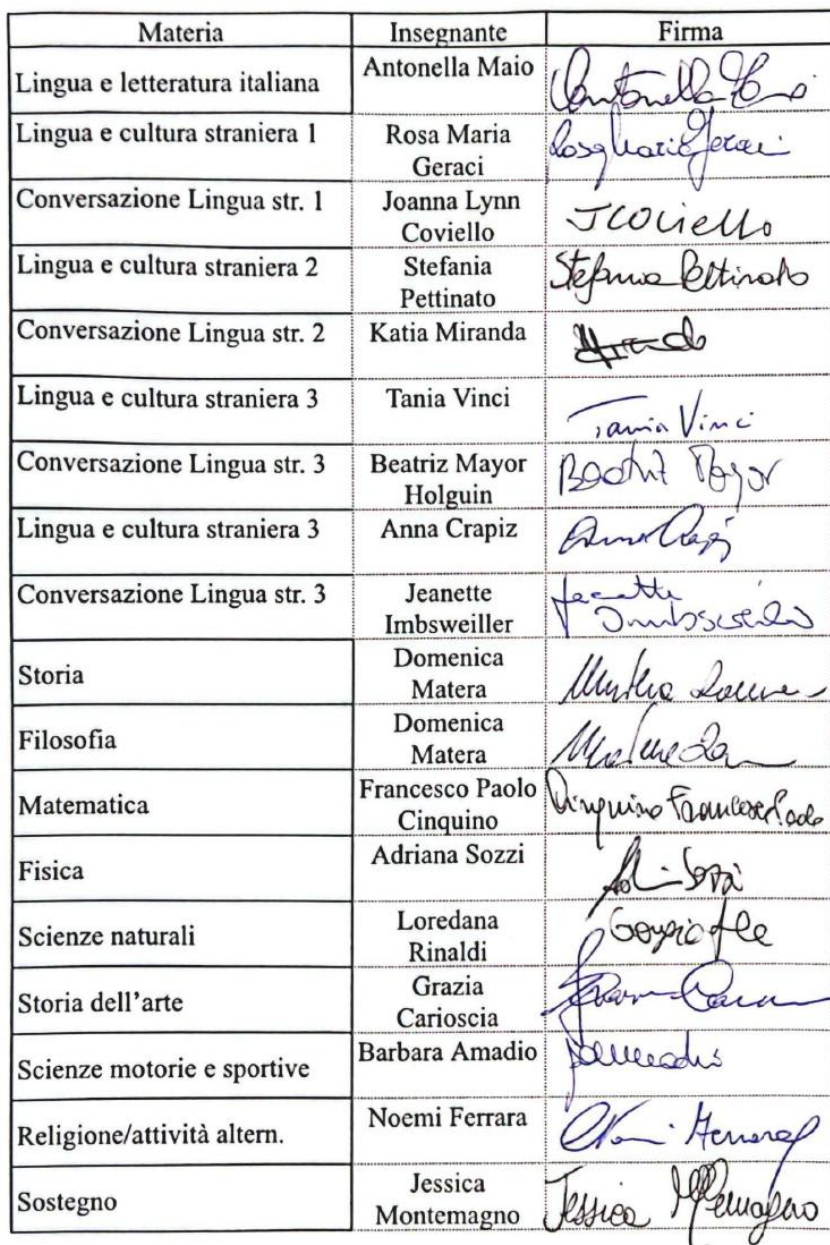 Materia Insegnante Firma
Lingua e letteratura italiana Antonella Maio Antonella
Lingua e cultura straniera 1 Rosa Maria Rosa Maria Geraci
Geraci
Conversazione Lingua str. 1 Joanna Lynn JCoviello
Coviello
Lingua e cultura straniera 2 Stefania Stefania Pettinato
Pettinato
Conversazione Lingua str. 2 Katia Miranda
Lingua e cultura straniera 3 Tania Vinci Tania Vinci
Conversazione Lingua str. 3 Beatriz Mayor Beatriz Mayor
Holguin
Lingua e cultura straniera 3 Anna Crapiz
Conversazione Lingua str. 3 Jeanette Jeanette
Imbsweiller Imbsweiller
Storia Domenica
Matera
Filosofia Domenica
Matera
Matematica Francesco Paolo Cinquino Francesco Paolo
Cinquino
Fisica Adriana Sozzi
Scienze naturali Loredana
Rinaldi
Storia dell'arte Grazia
Carioscia
Scienze motorie e sportive Barbara Amadio
Religione/attività altern. Noemi Ferrara
Sostegno Jessica Jessica
Montemagno